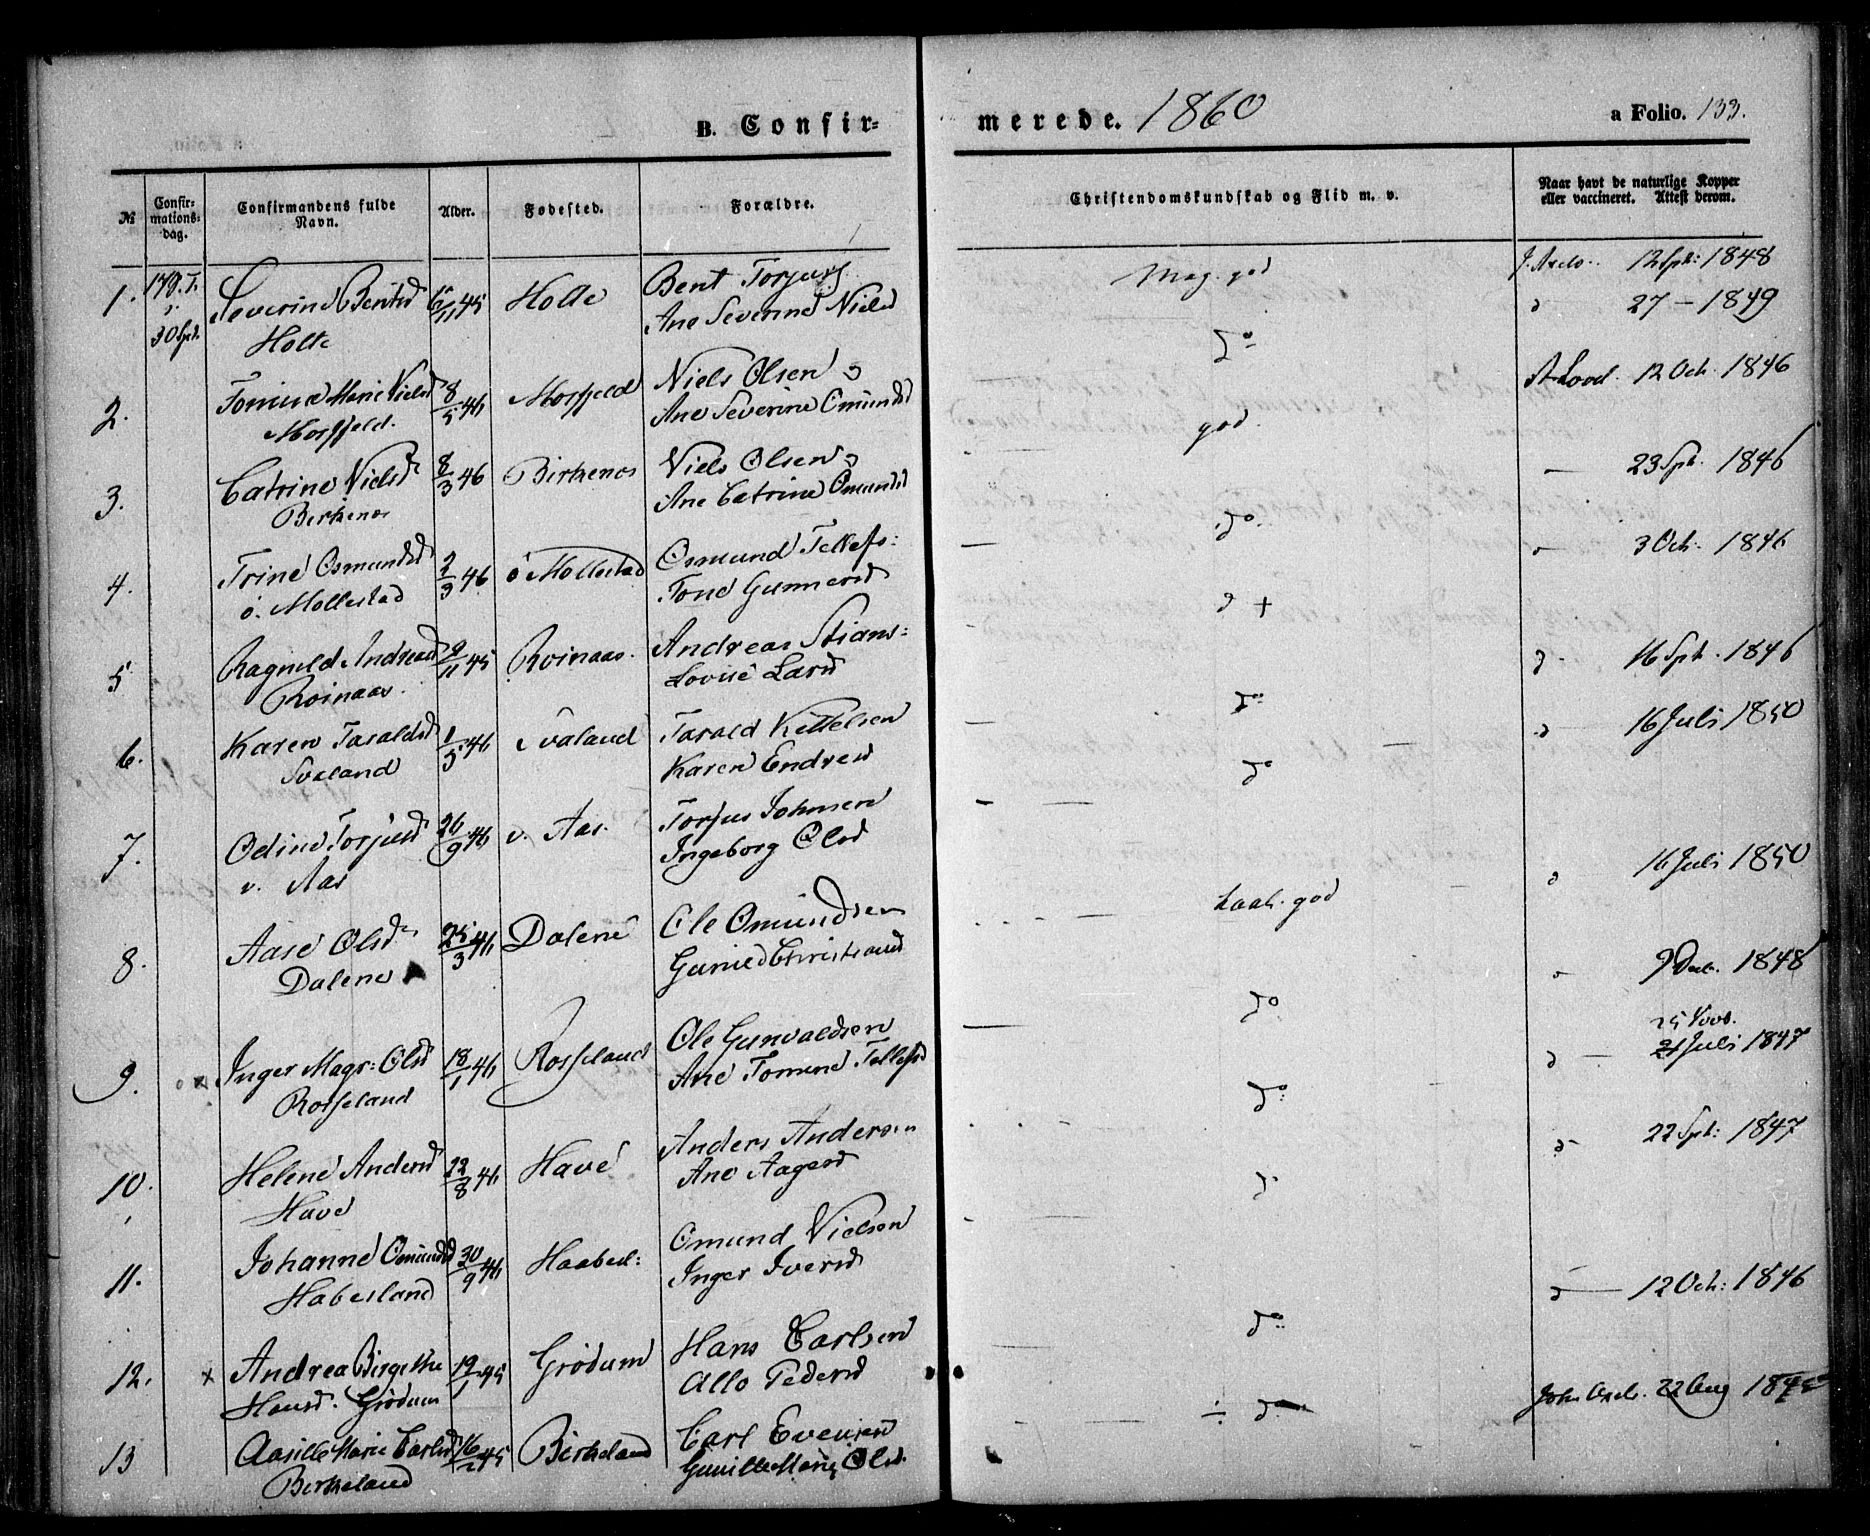 B. Confir-
merede. 1860
a Folio. 133.
№
Confir-
mations-
dag.
Confirmandens fulde
Navn.
Alder.
Fødested.
Forældre.
Christendomskundskab og Flid m. v.
Naar havt de naturlige Kopper
eller vaccineret. Attest derom.
1.
30 Spt.
Severine Bentsd
Holte
45
Holte
Bent Torjus
Ane Severine Nielsd
Meg. god
12 Spt: 1848
27 - 1849
2.
Tomine Marie Nielsd
Mosfjeld.
8/5 46
Mosfjeld
Niels Olsen
Ane Severine Omundsd
do
12 Oct. 1846
3.
Catrine Nielsd
Birkenes
8/3 46
Birkenes
Niels Olsen
Ane Catrine Omundsd
god.
23 Spt. 1846
4.
Trine Osmundsd
ö. Mollestad
2/3 46
ö Mollestad
Osmund Tellefs:
Tone Gunnersd
do.
3 Oct. 1846
5
Ragnild Andreasd
Roinaas.
9/11 45
Roinaas.
Andreas Stians:
Lovise Larsd
d +
16 Spt. 1846
6.
Karen Taraldsd
Svaland
1/5 46
Svaland
Tarald Kittelsen
Karen Endresd
do
16 Juli 1850
7.
Odine Torjusd
v. Aas
26/9 46
v. Aas.
Torjus Johnsen
Ingeborg Olsd
do
16 Juli 1850
8.
Aase Olsd
Dalene
25/3 46
Dalene
Ole Omundsen
Gunild Christiansd
taal. god
9 Dec. 1848
9.
Inger Magr: Olsd
Rosseland
18/1 46
Rosseland
Ole Gunvaldsen
Ane Tomine Tellefsd
do
25 Nov.
21 Juli 1847
10.
Helene Andersd
Have
22/8 46
Have
Anders Andersen
Ane Aagesd
do:
22 Spt: 1847
11.
Johanne Omundsd
Haberland
30/9 46
Haabesl:
Omund Nielsen
Inger Iversd
d
12 Oct: 1846
12.
x
Andrea Birgethe
Hansd. Grödum
19/1 45
Grödum
Hans Carlsen
Allo Pedersd
do:
22 Aug
13
Aasille Marie Carlsd
Birkeland
16/2 45
Birkeland
Carl Evensen
Gunille Marie Olsd.
÷ do